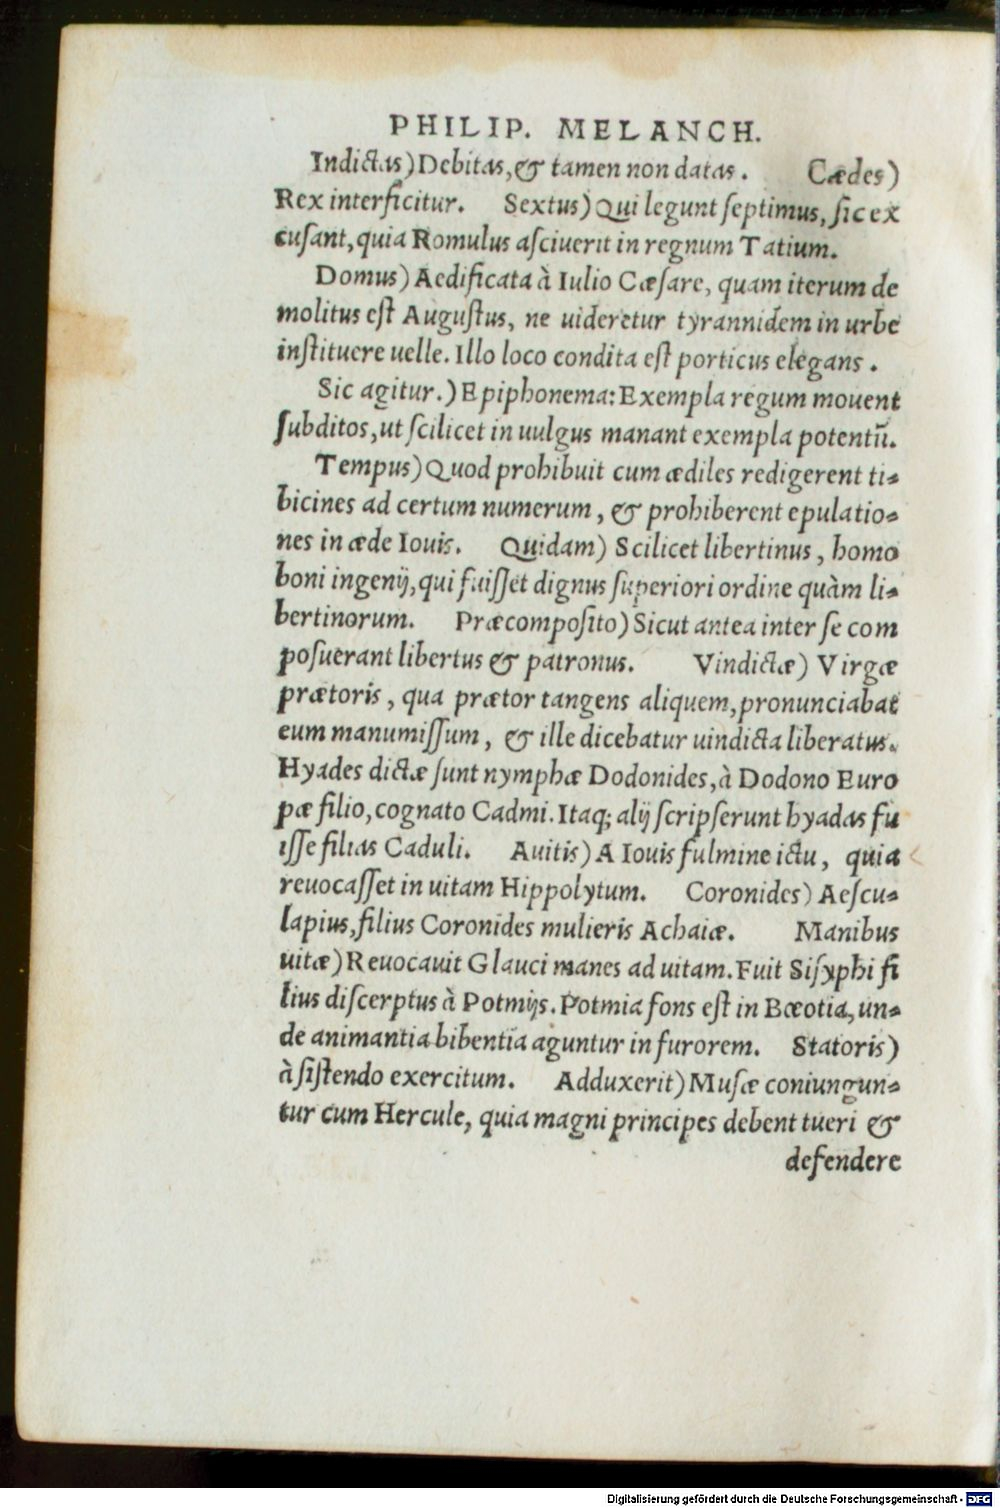 PHILIP. MELANCH.
Indictas) Debitas, & tamen non datas. Cædes)
Rex interficitur. Sextus) Qui legunt ſeptimus, ſic ex
cuſant, quia Romulus aſciuerit in regnum Tatium.
Domus) Aedificata à Iulio Cæſare, quam iterum de
molitus eſt Auguſtus, ne uideretur tyrannidem in urbe
inſtituere uelle. Illo loco condita eſt porticus elegans.
Sic agitur.) Epiphonema: Exempla regum mouent
ſubditos, ut ſcilicet in uulgus manant exempla potentū.
Tempus) Quod prohibuit cum ædiles redigerent ti-
bicines ad certum numerum, & prohiberent epulatio-
nes in æde Iouis. Quidam) Scilicet libertinus, homo
boni ingenij, qui fuiſſet dignus ſuperiori ordine quàm li-
bertinorum. Præcompoſito) Sicut antea inter ſe com
poſuerant libertus & patronus. Vindictæ) Virgæ
prætoris, qua prætor tangens aliquem, pronunciabat
eum manumiſſum, & ille dicebatur uindicta liberatus.
Hyades dictæ ſunt nymphæ Dodonides, à Dodono Euro
pæ filio, cognato Cadmi. Itaq; alij ſcripſerunt hyadas fu
iſſe filias Caduli. Auitis) A Iouis fulmine ictu, quia
reuocaſſet in uitam Hippolytum. Coronides) Aeſcu-
lapius, filius Coronides mulieris Achaiæ. Manibus
uitæ) Reuocauit Glauci manes ad uitam. Fuit Siſyphi fi
lius diſcerptus à Potmijs. Potmia fons eſt in Bœotia, un-
de animantia bibentia aguntur in furorem. Statoris)
à ſiſtendo exercitum. Adduxerit) Muſæ coniungun-
tur cum Hercule, quia magni principes debent tueri &
defendere
Digitalisierung gefördert durch die Deutsche Forschungsgemeinschaft - DFG